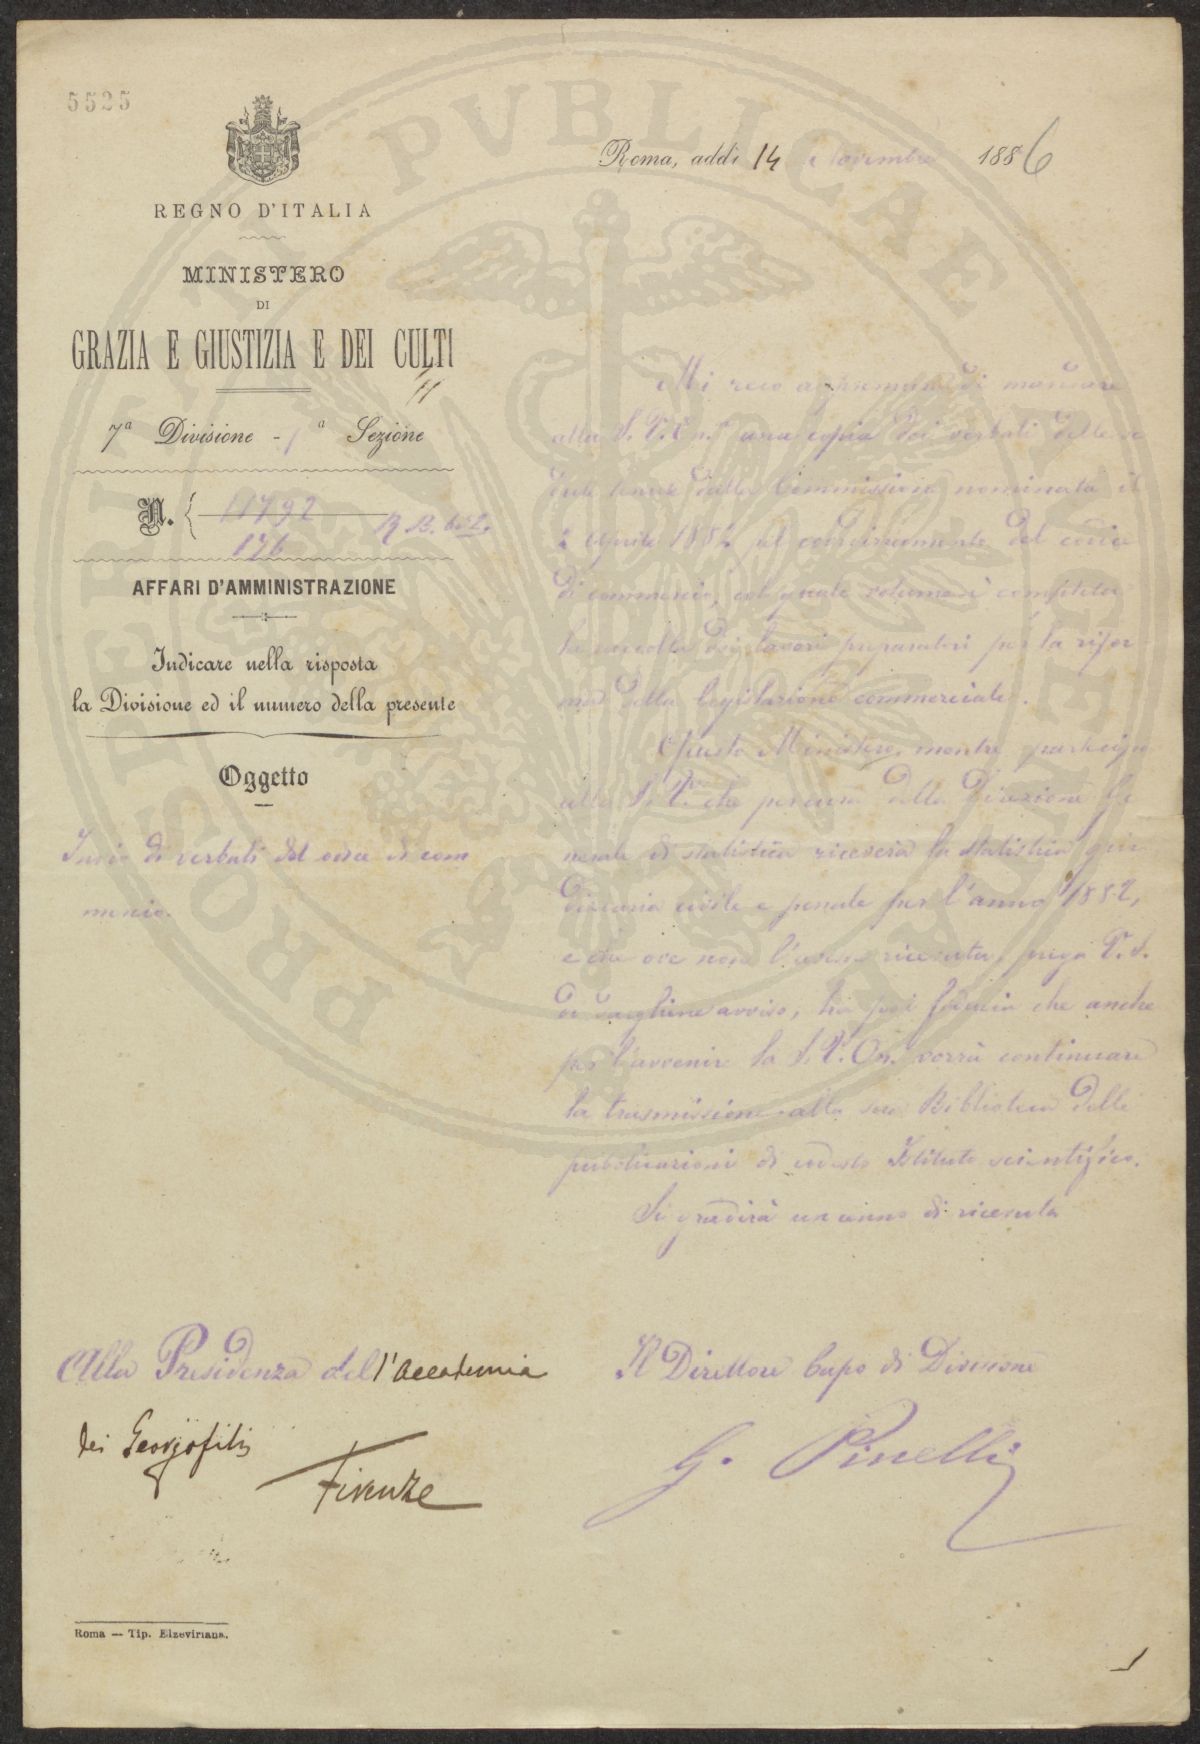 5525
REGNO D'ITALIA
MINISTERO
DI
GRAZIA E GIUSTIZIA E DEI CULTI
7ª Divisione - 1ª Sezione
N. { 11792
176
R. B.
AFFARI D'AMMINISTRAZIONE
Indicare nella risposta
la Divisione ed il numero della presente
Oggetto
Invio di verbali del codice di com
mercio.
Roma, addì 14 Novembre 1886
Mi reco a premura di mandare
alla S. V. On. una copia dei verbali delle se
dute tenute dalla Commissione nominata il
2 Aprile 1882 pel coordinamento del codice
di commercio, col quale volume si completa
la raccolta dei lavori preparatori per la rifor
ma della legislazione commerciale.
Questo Ministero, mentre partecipa
alla S. V. che per cura della Direzione Ge
nerale di statistica riceverà la statistica giu
diziaria civile e penale per l'anno 1882,
e che ove non l'avesse ricevuta, prega V. S.
di dargliene avviso, ha poi fiducia che anche
per l'avvenire la S. V. On. vorrà continuare
la trasmissione alla sua Biblioteca delle
pubblicazioni di codesto Istituto scientifico.
Si gradirà un cenno di ricevuta
Il Direttore Capo di Divisione
G. Pinelli
Alla Presidenza dell'Accademia
dei Georgofili
Firenze
Roma — Tip. Elzeviriana.
PROSPERITATI PVBLICAE AVGENDAE